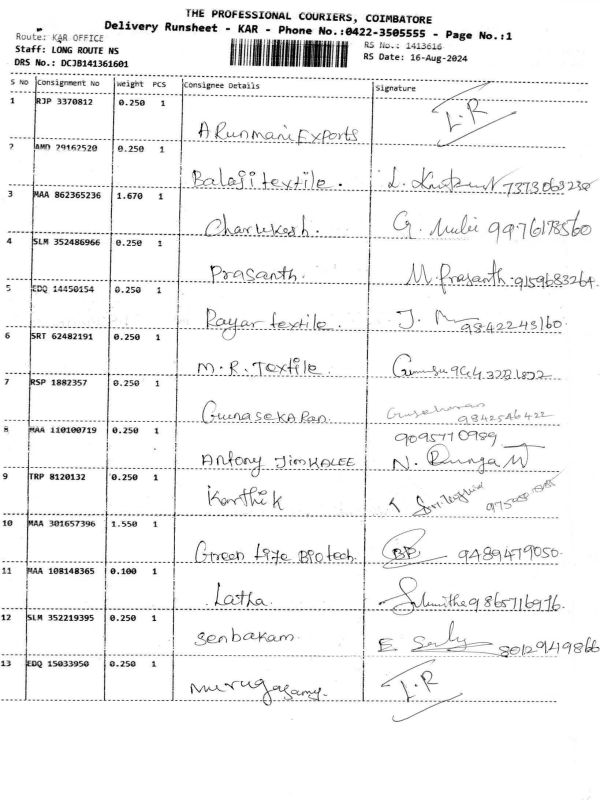 THE PROFESSIONAL COURIERS, COIMBATORE
Delivery Runsheet - KAR - Phone No.:0422-3505555 - Page No.:1
Route: KAR OFFICE
RS No.: 1413616
Staff: LONG ROUTE NS
RS Date: 16-Aug-2024
DRS No.: DCJB141361601
S No Consignment No Weight PCS Consignee Details Signature
1 RJP 3370812 0.250 1
ARunmani Exports
I.R
2 AMD 29162520 0.250 1
Balaji textile. 7373063230
3 MAA 862365236 1.670 1
Charukesh. 9976178560
4 SLM 352486966 0.250 1
Prasanth. M. Prasanth. 9159683264.
5 EDQ 14450154 0.250 1
Rayar textile. 9842243160.
6 SRT 62482191 0.250 1
M.R. Textile.
7 RSP 1882357 0.250 1
Gunasekaran. 9842546422
8 MAA 110100719 0.250 1
9095710989
Antony JimKALEE
9 TRP 8120132 0.250 1
Karthik
10 MAA 301657396 1.550 1
Green Life Biotech. BP 9489479050.
11 MAA 108148365 0.100 1
Latha. 9865716976.
12 SLM 352219395 0.250 1
Senbakam 8012949866
13 EDQ 15033950 0.250 1
Murugasamy.
I.R